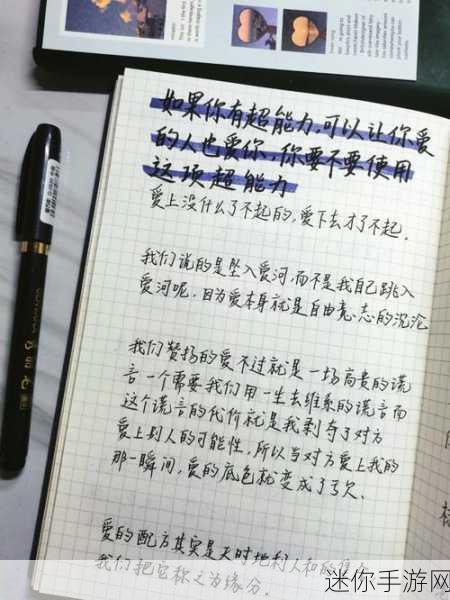 如果你有超能力,可以让你爱
的人也爱你,你要不要使用
这项超能力
爱上没什么了不起的,爱下去才了不起.
我们说的是坠入爱河,而不是我自己跳入
爱河呢,因为爱本身就是自由意志的沉沦
我们赞扬的爱不过就是一场高贵的谎
言一个需要我们用一生去维系的谎言而
这个谎言的代价就是我剥夺了对方
爱上别人的可能性,所以当对方爱上我的
那一瞬间,爱的底色就变成了亏欠.
爱的配方其实是天时地利人和的集合
我们把它称之为缘分.
迷你手游网